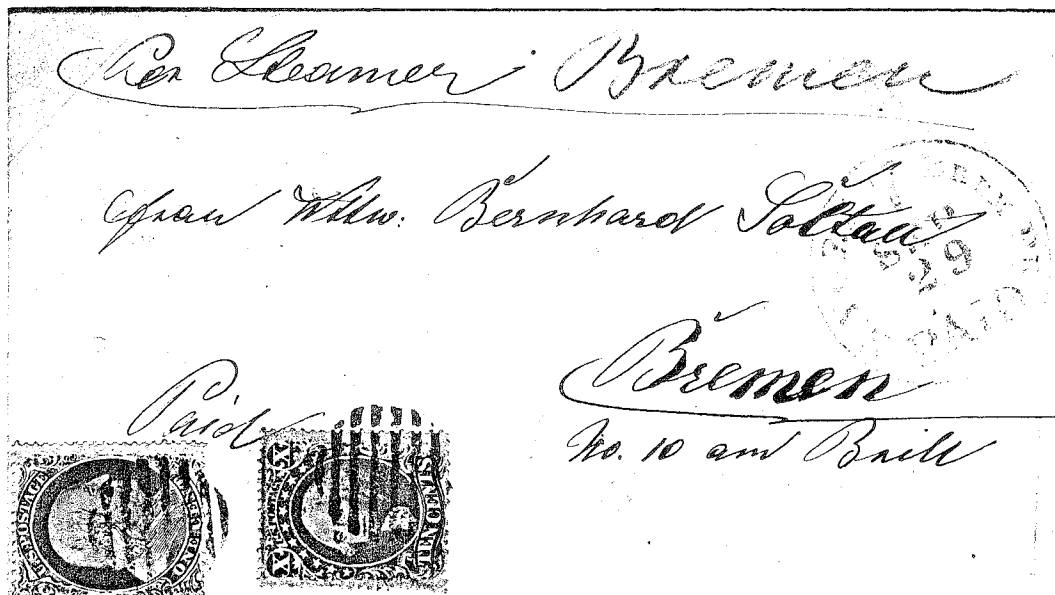 Per Steamer Bremen
Frau Wttw. Bernhard Soltau
Bremen
No. 10 am Brill
Paid
29
PAID
U.S. POSTAGE
ONE CENT
U.S. POSTAGE
X X
TEN CENTS